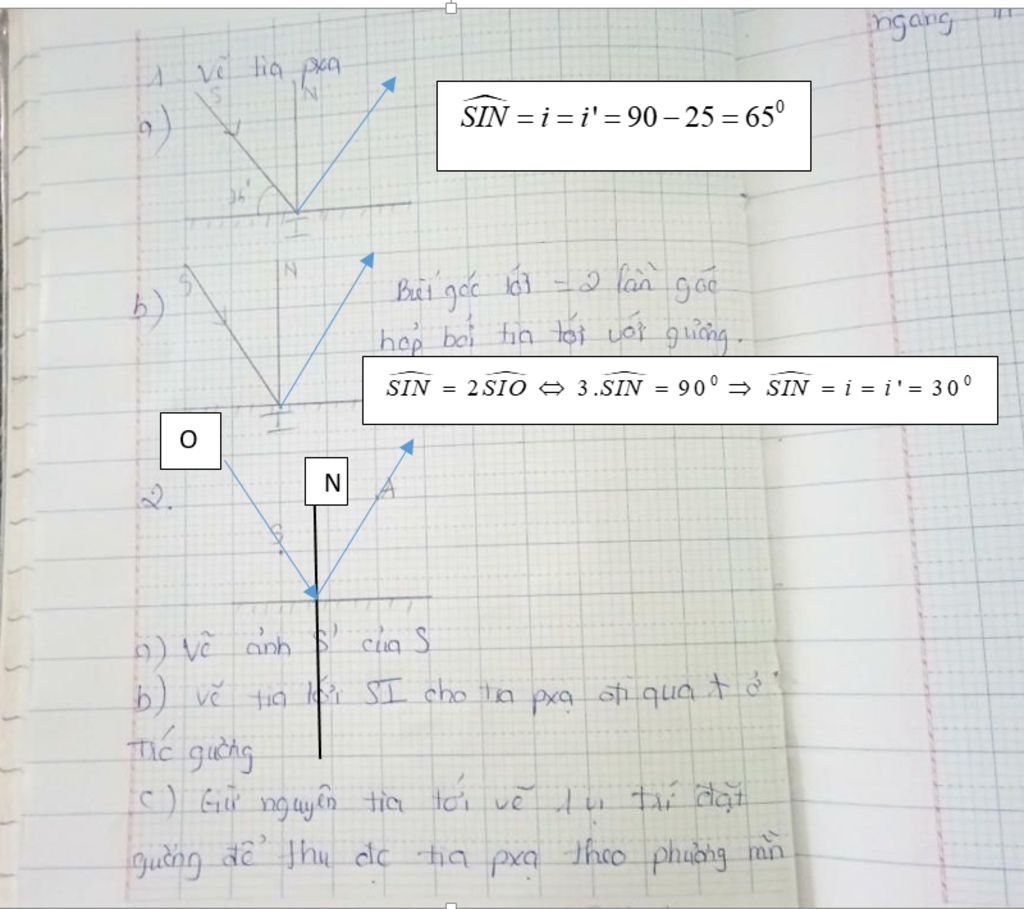 ngang
1. Vẽ tia pxạ
S N
a)
SIN = i = i' = 90 − 25 = 65⁰
I
S N
b)
Biết góc tới = 2 lần góc
hợp bởi tia tới với gương.
SIN = 2SIO ⇔ 3.SIN = 90⁰ ⇒ SIN = i = i' = 30⁰
I
O
N
2.
A
S
a) Vẽ ảnh S' của S
b) Vẽ tia tới SI cho tia pxạ đi qua A ở
gường
c) Giữ nguyên tia tới vẽ 1 vị trí đặt
gường để thu đc tia pxạ theo phương